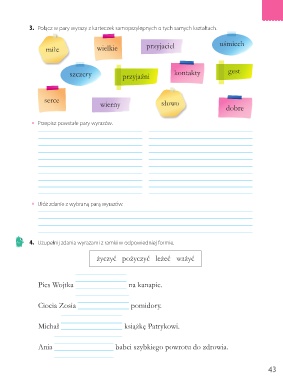 3. Połącz w pary wyrazy z karteczek samoprzylepnych o tych samych kształtach.
miłe
wielkie
przyjaciel
uśmiech
szczery
przyjaźni
kontakty
gest
serce
wierny
słowo
dobre
• Przepisz powstałe pary wyrazów.
• Ułóż zdanie z wybraną parą wyrazów.
4. Uzupełnij zdania wyrazami z ramki w odpowiedniej formie.
życzyć pożyczyć leżeć ważyć
Pies Wojtka na kanapie.
Ciocia Zosia pomidory.
Michał książkę Patrykowi.
Ania babci szybkiego powrotu do zdrowia.
43